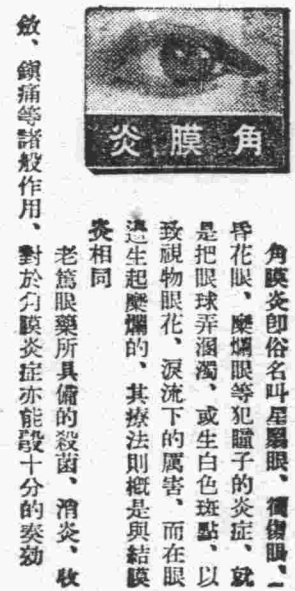 角膜炎
角膜炎卽俗名叫星翳眼、
昏花眼、糜爛眼等犯瞳子的炎症、就
是把眼球弄溷濁、或生白色斑點、以
致視物眼花、淚流下的厲害、而在眼
邊生起糜爛的、其療法則槪是與結膜
炎相同
老篤眼藥所具備的殺菌、消炎、收
斂、鎭痛等諸般作用、
對於角膜炎症亦能設十分的奏効